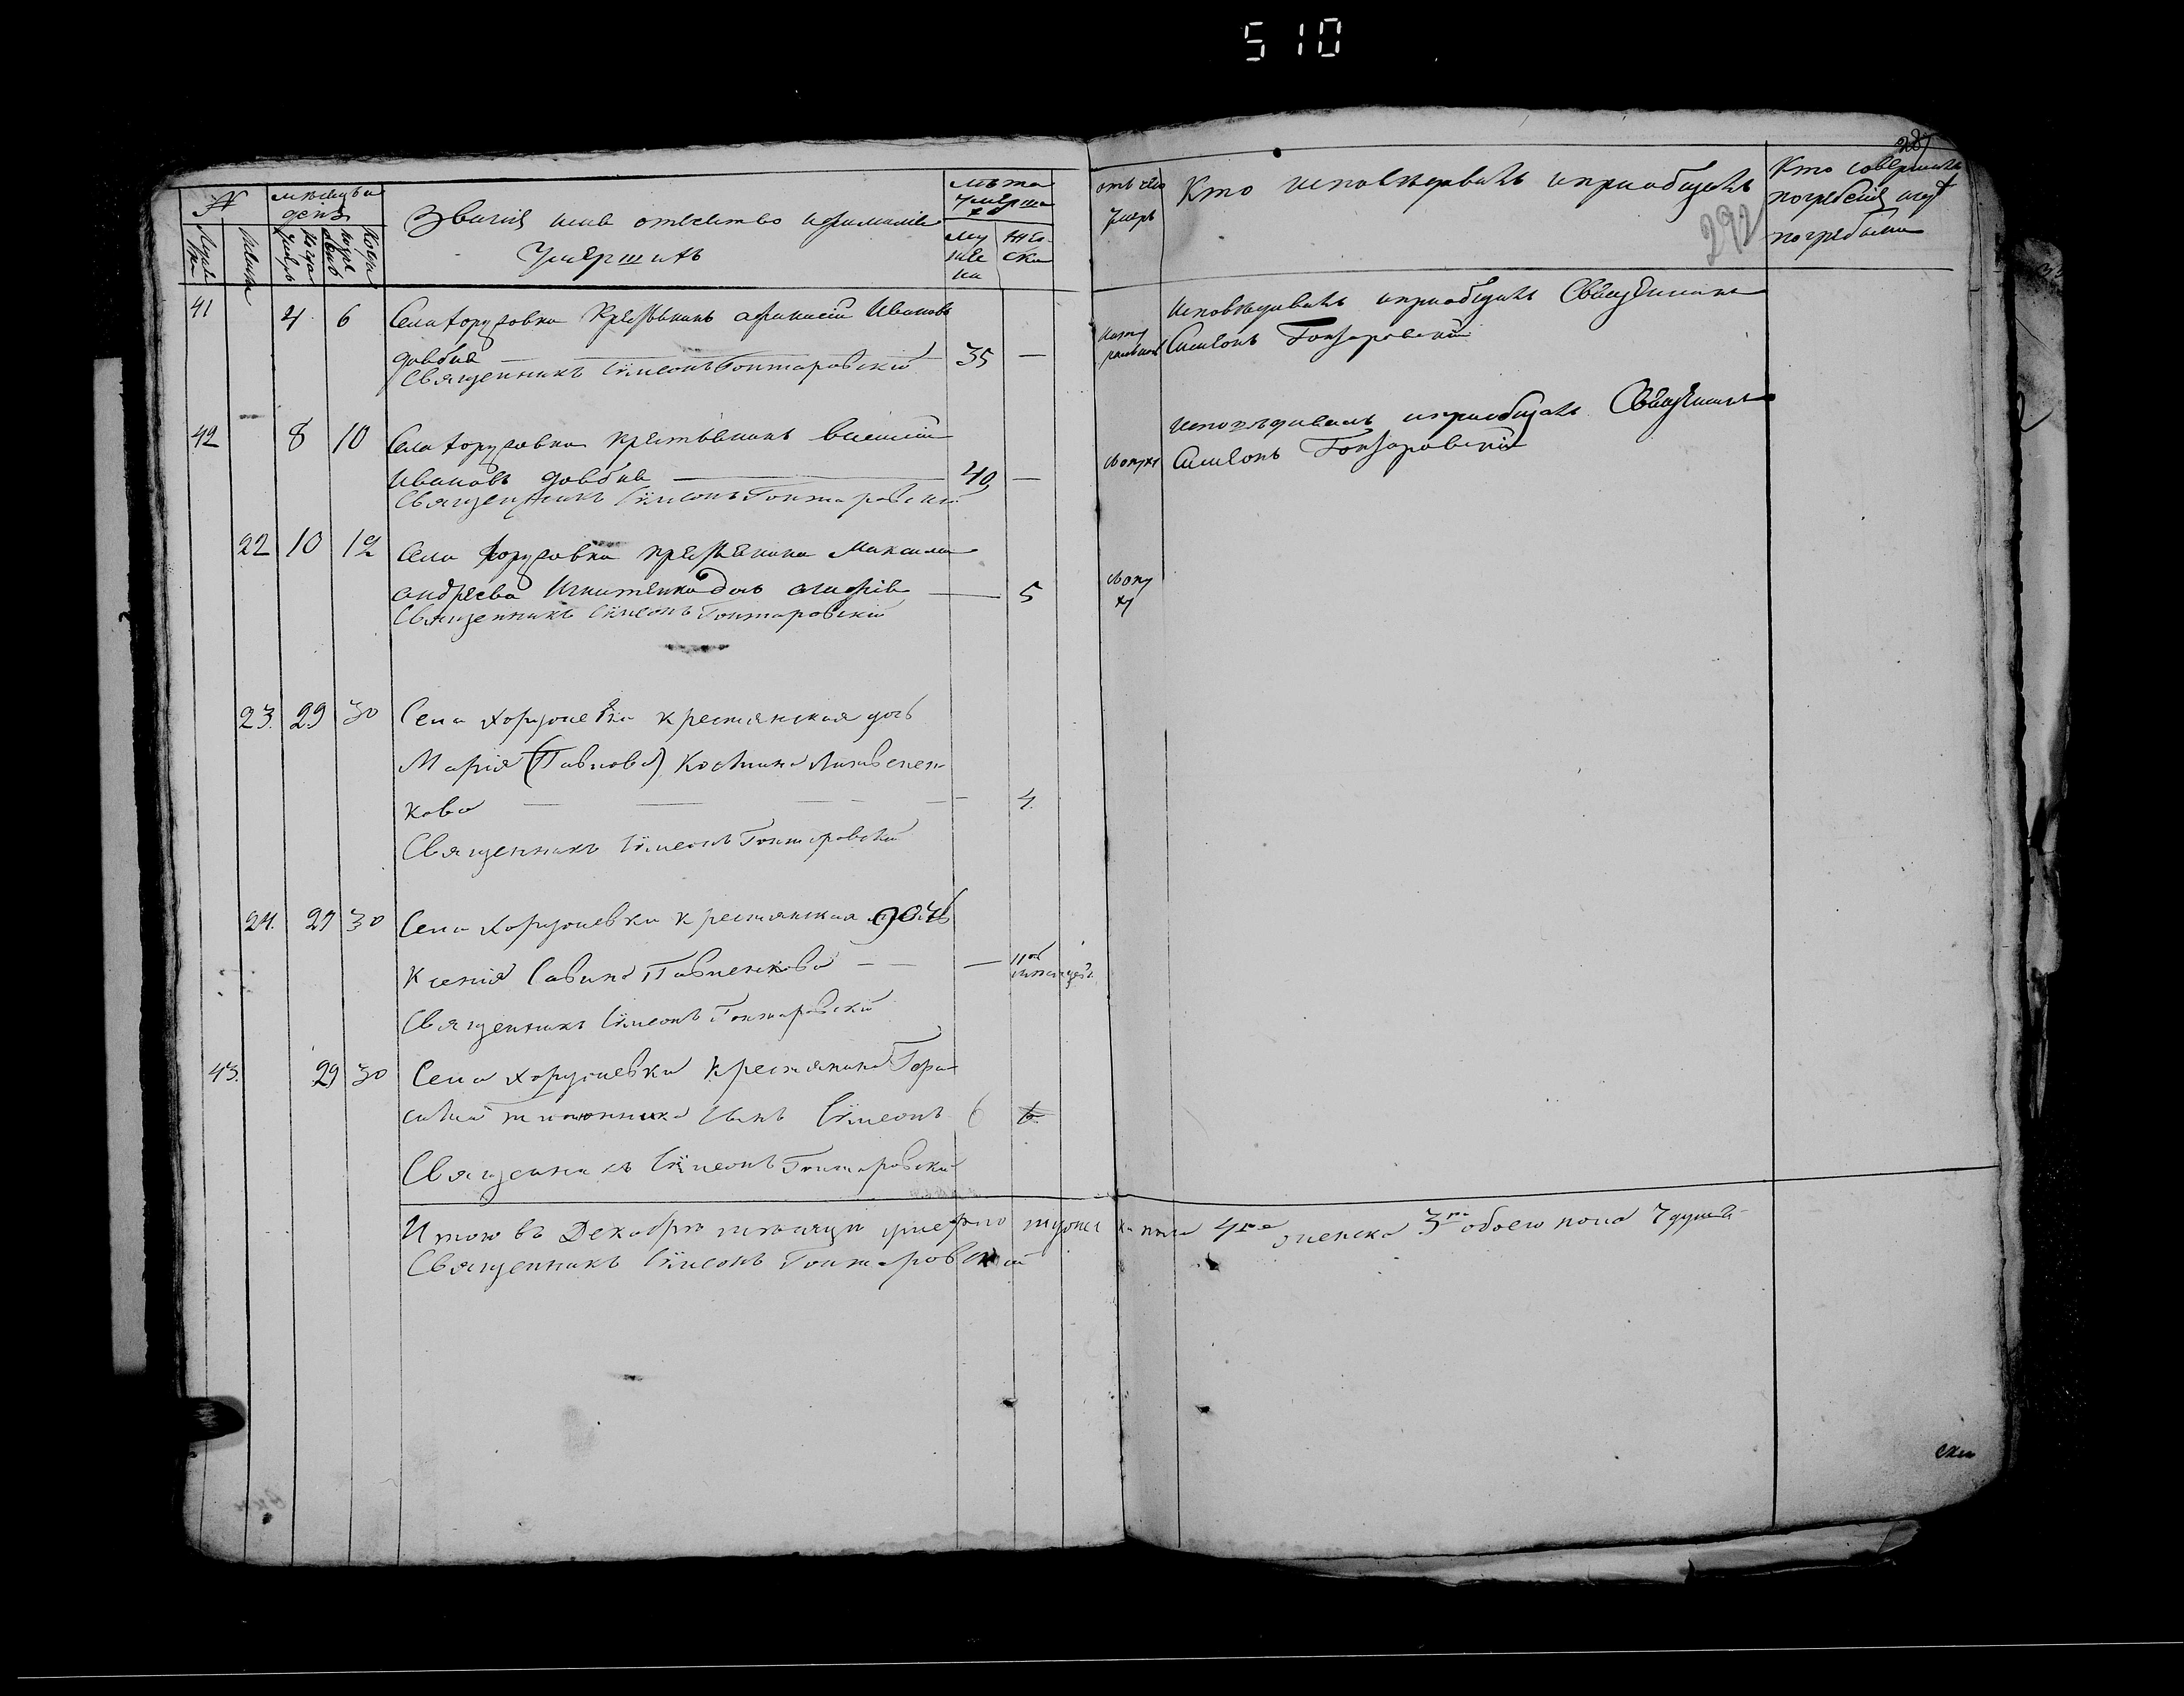 510
287
292
№
мѣсяцъ и
день
Званія имя отечество и фамилія
умершихъ
лѣта
умерша
го
отъ чего
умеръ
Кто исповѣдывалъ и приобщалъ
Кто совершалъ
погребеніе и гдѣ
погребены
Когда
умеръ
Когда
погре
бенъ
Му
жес
ка
Жен
ска
41 4 6 Села Хоружовки Крестьянинъ Афанасій Ивановъ
Довбня 35 —
Священникъ Сѵмеонъ Гонтаровскій
Исповѣдывалъ и приобщалъ Священникъ
Симеонъ Гонтаровскій
42 8 10 Села Хоружовки крестьянинъ
Ивановъ Довбня 40 —
Священникъ Сѵмеонъ Гонтаровскій
исповѣдывалъ и приобщалъ Священникъ
Симеонъ Гонтаровскій
22 10 12 Села Хоружовки крестьянина Максима
Андреева Игнатенка дочь — 5
Священникъ Сѵмеонъ Гонтаровскій
23. 29 30 Села Хоружевки крестянская дочь
Марія (Павлова) Костина Литвенен-
кова — 4.
Священникъ Сѵмеонъ Гонтаровскій
24. 29 30 Села Хоружевки крестянская дочь
Ксенія Савина Павленкова — 11
мѣсяцей.
Священникъ Сѵмеонъ Гонтаровскій
43. 29 30 Села Хоружевки Крестянина Гера
сима сынъ Сѵмеонъ 6
Священникъ Сѵмеонъ Гонтаровскій
Итого въ Декабрѣ мѣсяцѣ умерло мужеска пола 4ре женска 3ри обоего пола 7 душъ
Священникъ Сѵмеонъ Гонтаровскій